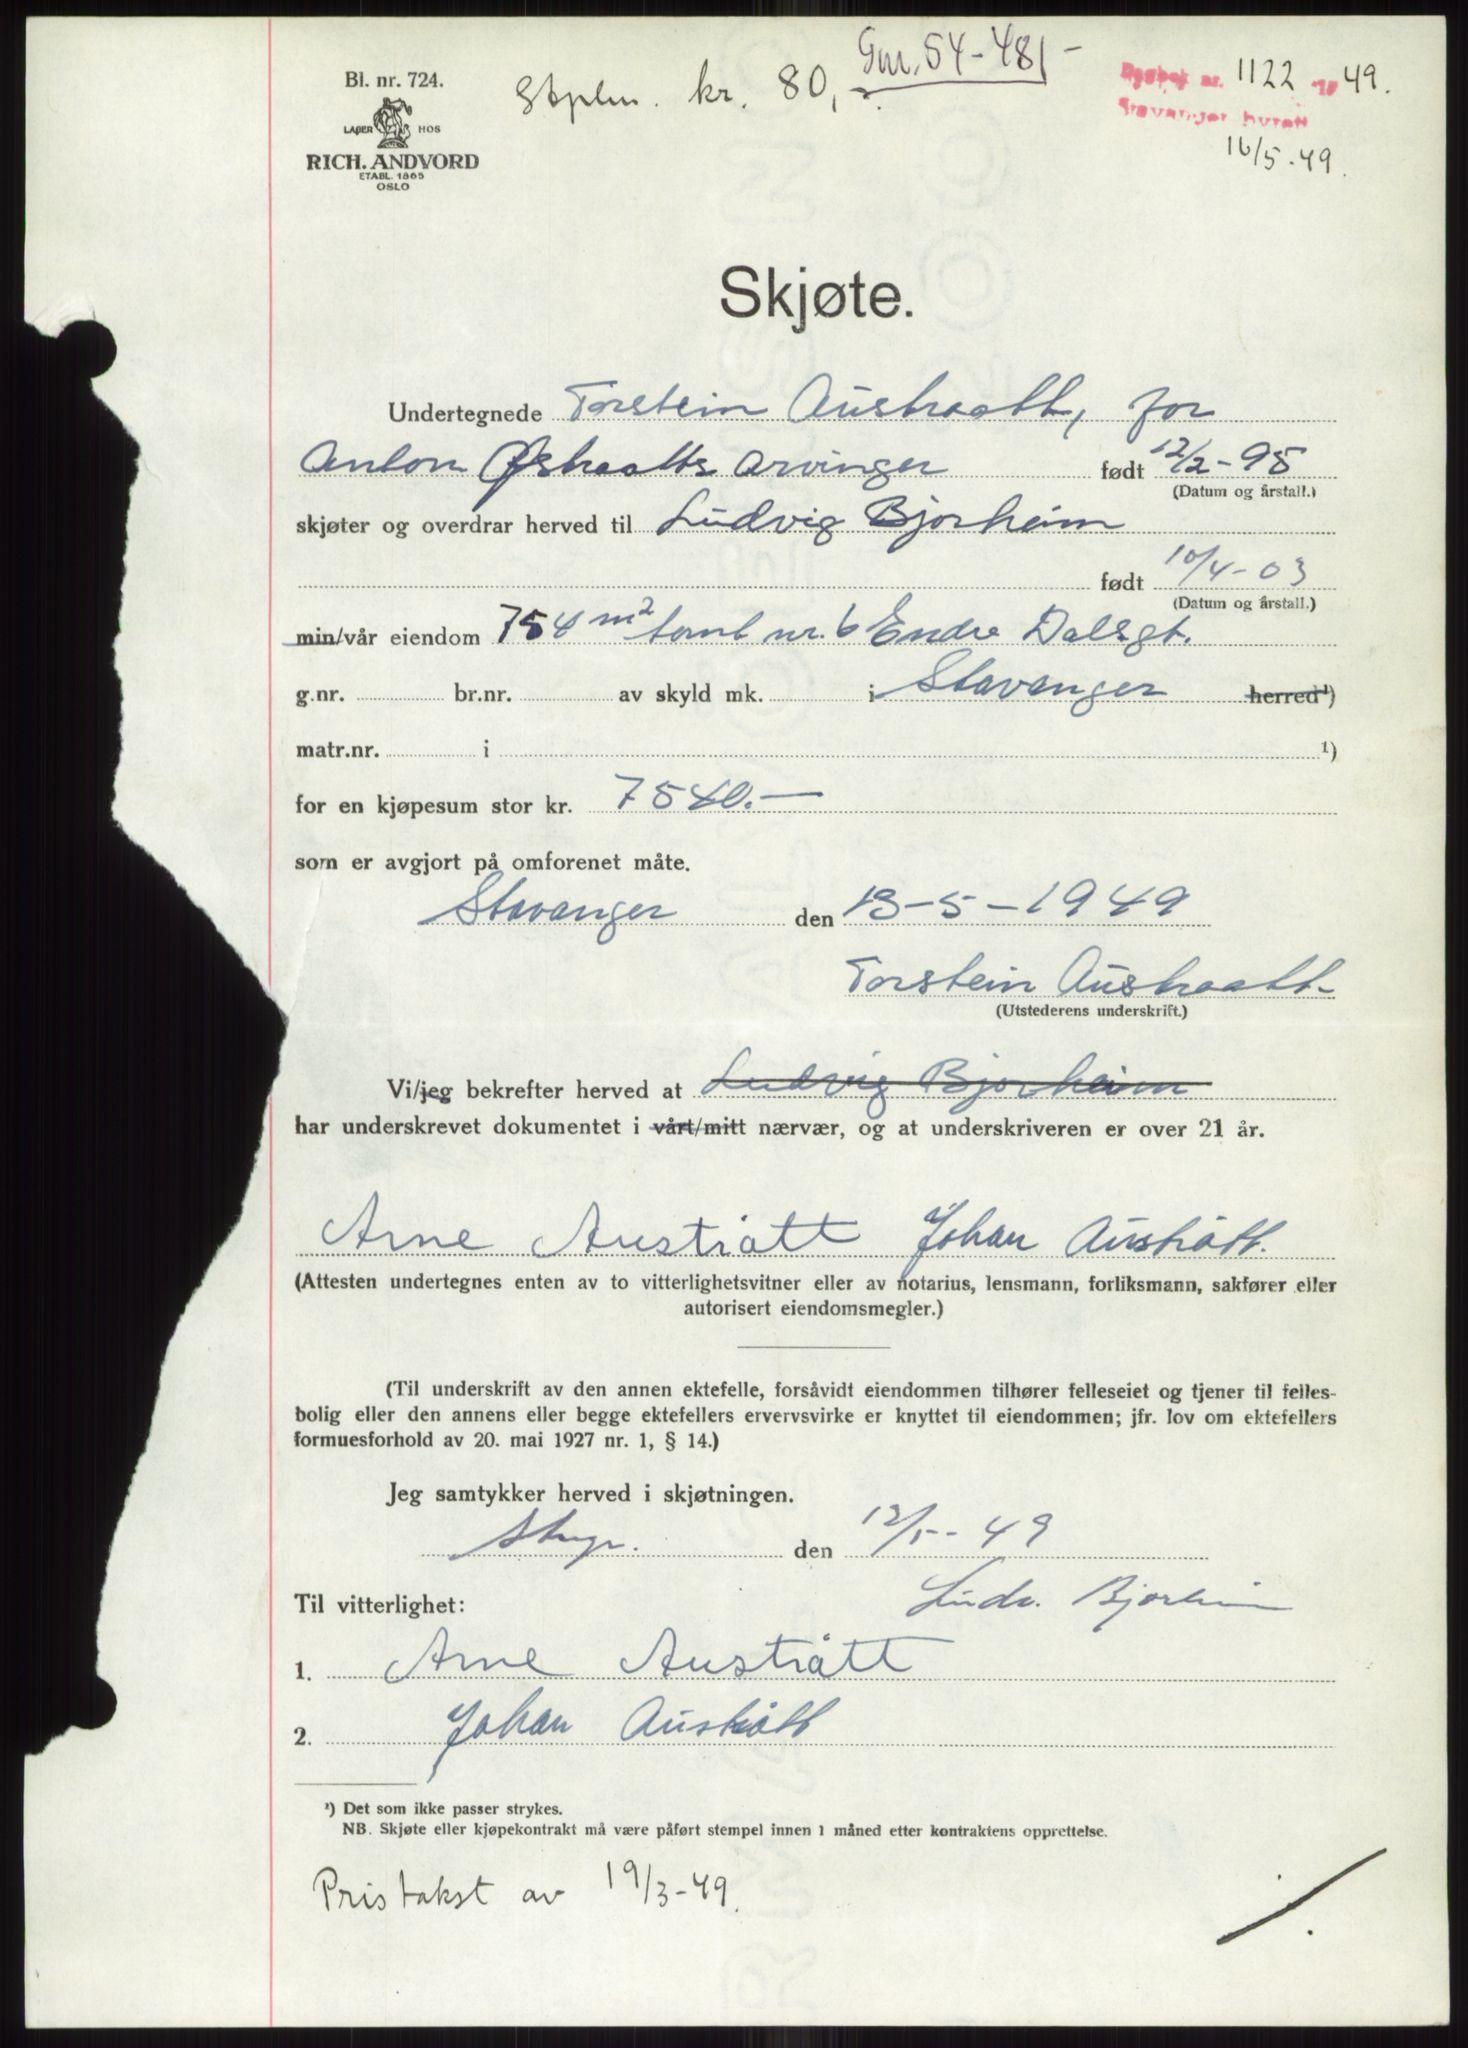 Gnr. 54-481
Stplm. kr. 80,-
Bl. nr. 724.
LAGER HOS
RICH. ANDVORD
ETABL. 1865
OSLO
Dagbok nr. 1122 19 49.
Stavanger byrett
16/5-49.
Skjøte.
Undertegnede Torstein Austraatt, for
Anton Østraatts arvinger født 12/2-95
(Datum og årstall.)
skjøter og overdrar herved til Ludvig Bjorheim
født 10/4-03
(Datum og årstall.)
min/vår eiendom 754 m2 tomt nr. 6 Endre Dalsgt.
g.nr. br.nr. av skyld mk. i Stavanger herred¹)
matr.nr. i ¹)
for en kjøpesum stor kr. 7540.—
som er avgjort på omforenet måte.
Stavanger den 13-5-1949
Torstein Austraatt
(Utstederens underskrift.)
Vi/jeg bekrefter herved at Ludvig Bjorheim
har underskrevet dokumentet i vårt/mitt nærvær, og at underskriveren er over 21 år.
Arne Austrått Johan Austrått.
(Attesten undertegnes enten av to vitterlighetsvitner eller av notarius, lensmann, forliksmann, sakfører eller
autorisert eiendomsmegler.)
(Til underskrift av den annen ektefelle, forsåvidt eiendommen tilhører felleseiet og tjener til felles-
bolig eller den annens eller begge ektefellers ervervsvirke er knyttet til eiendommen; jfr. lov om ektefellers
formuesforhold av 20. mai 1927 nr. 1, § 14.)
Jeg samtykker herved i skjøtningen.
den 12/5-49
Ludv. Bjorheim
Til vitterlighet:
1. Arne Austrått
2. Johan Austrått
¹) Det som ikke passer strykes.
NB. Skjøte eller kjøpekontrakt må være påført stempel innen 1 måned etter kontraktens opprettelse.
Pristakst av 19/3-49.